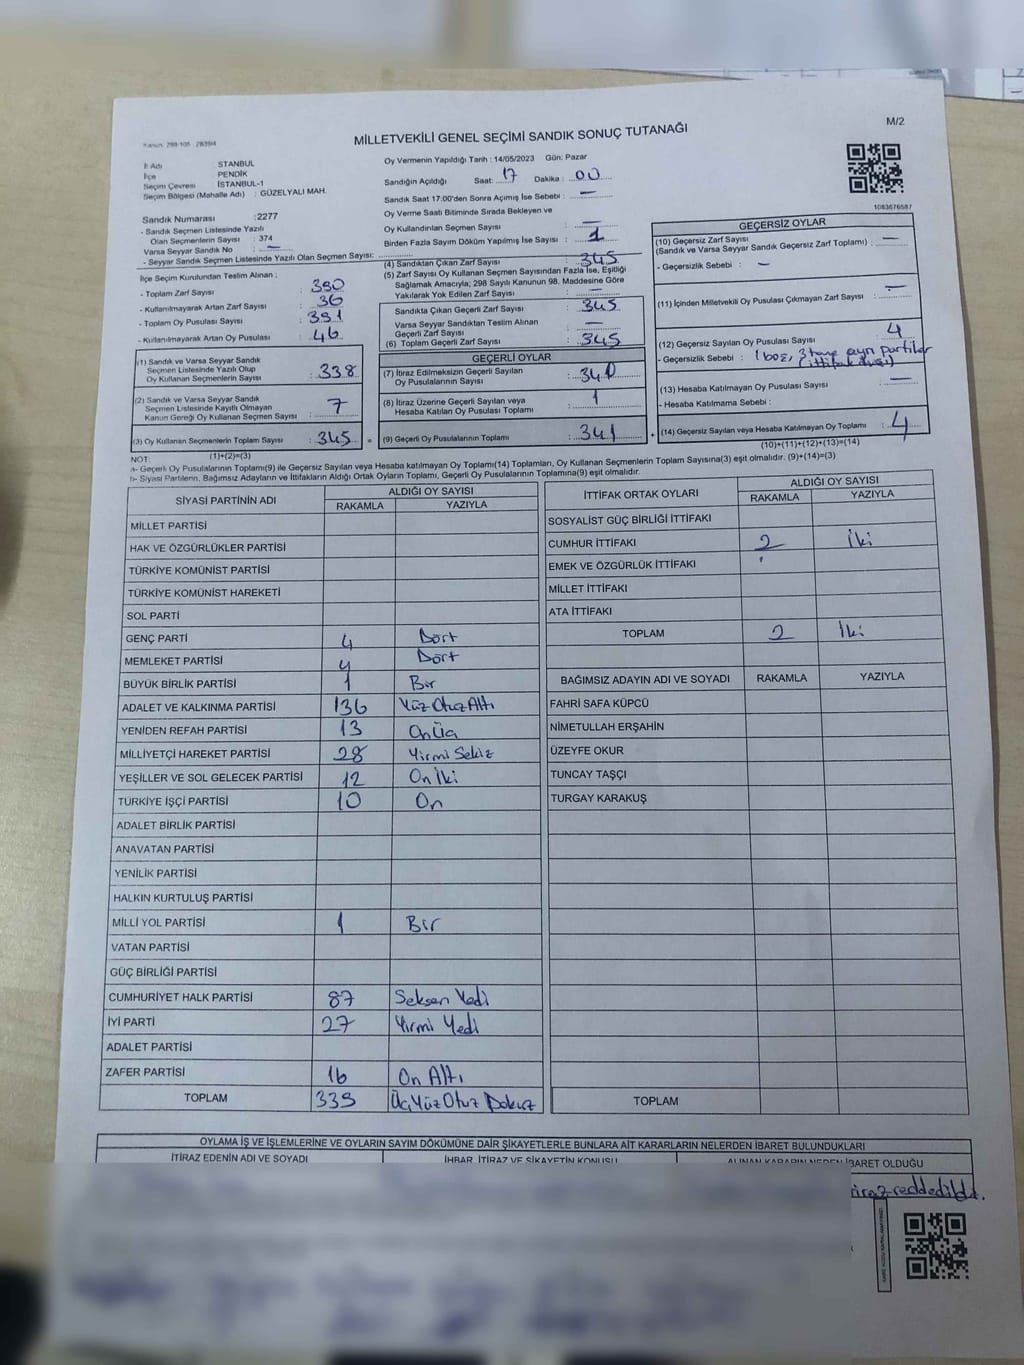 M/2
Kanun: 298/105 28394
MİLLETVEKİLİ GENEL SEÇİMİ SANDIK SONUÇ TUTANAĞI
İl Adı : İSTANBUL
İlçe : PENDİK
Seçim Çevresi : İSTANBUL-1
Seçim Bölgesi (Mahalle Adı) : GÜZELYALI MAH.
Sandık Numarası :2277
- Sandık Seçmen Listesinde Yazılı
Olan Seçmenlerin Sayısı : 374
Varsa Seyyar Sandık No : —
- Seyyar Sandık Seçmen Listesinde Yazılı Olan Seçmen Sayısı:
Oy Vermenin Yapıldığı Tarih : 14/05/2023 Gün: Pazar
Sandığın Açıldığı Saat: 17 Dakika : 00
Sandık Saat 17:00'den Sonra Açımış İse Sebebi : —
Oy Verme Saati Bitiminde Sırada Bekleyen ve
Oy Kullandırılan Seçmen Sayısı : —
Birden Fazla Sayım Döküm Yapılmış İse Sayısı : 1
1083676587
İlçe Seçim Kurulundan Teslim Alınan ;
- Toplam Zarf Sayısı : 380
- Kullanılmayarak Artan Zarf Sayısı : 36
- Toplam Oy Pusulası Sayısı : 391
- Kullanılmayarak Artan Oy Pusulası : 46
(1) Sandık ve Varsa Seyyar Sandık
Seçmen Listesinde Yazılı Olup
Oy Kullanan Seçmenlerin Sayısı : 338
(2) Sandık ve Varsa Seyyar Sandık
Seçmen Listesinde Kayıtlı Olmayan
Kanun Gereği Oy Kullanan Seçmen Sayısı : 7
(3) Oy Kullanan Seçmenlerin Toplam Sayısı : 345 =
(1)+(2)=(3)
(4) Sandıktan Çıkan Zarf Sayısı : 345
(5) Zarf Sayısı Oy Kullanan Seçmen Sayısından Fazla İse, Eşitliği
Sağlamak Amacıyla; 298 Sayılı Kanunun 98. Maddesine Göre
Yakılarak Yok Edilen Zarf Sayısı : —
Sandıkta Çıkan Geçerli Zarf Sayısı : 345
Varsa Seyyar Sandıktan Teslim Alınan
Geçerli Zarf Sayısı : —
(6) Toplam Geçerli Zarf Sayısı : 345
GEÇERLİ OYLAR
(7) İtiraz Edilmeksizin Geçerli Sayılan
Oy Pusulalarının Sayısı : 340
(8) İtiraz Üzerine Geçerli Sayılan veya
Hesaba Katılan Oy Pusulası Toplamı : 1
(9) Geçerli Oy Pusulalarının Toplamı : 341 +
GEÇERSİZ OYLAR
(10) Geçersiz Zarf Sayısı
(Sandık ve Varsa Seyyar Sandık Geçersiz Zarf Toplamı) : —
- Geçersizlik Sebebi : —
(11) İçinden Milletvekili Oy Pusulası Çıkmayan Zarf Sayısı : —
(12) Geçersiz Sayılan Oy Pusulası Sayısı : 4
- Geçersizlik Sebebi : 1 boş, 3 tane ayrı partiler
(ittifak dışı)
(13) Hesaba Katılmayan Oy Pusulası Sayısı : —
- Hesaba Katılmama Sebebi :
(14) Geçersiz Sayılan veya Hesaba Katılmayan Oy Toplamı : 4
(10)+(11)+(12)+(13)=(14)
NOT:
a- Geçerli Oy Pusulalarının Toplamı(9) ile Geçersiz Sayılan veya Hesaba katılmayan Oy Toplamı(14) Toplamları, Oy Kullanan Seçmenlerin Toplam Sayısına(3) eşit olmalıdır. (9)+(14)=(3)
b- Siyasi Partilerin, Bağımsız Adayların ve İttifakların Aldığı Ortak Oyların Toplamı, Geçerli Oy Pusulalarının Toplamına(9) eşit olmalıdır.
SİYASİ PARTİNİN ADI ALDIĞI OY SAYISI
RAKAMLA YAZIYLA
MİLLET PARTİSİ
HAK VE ÖZGÜRLÜKLER PARTİSİ
TÜRKİYE KOMÜNİST PARTİSİ
TÜRKİYE KOMÜNİST HAREKETİ
SOL PARTİ
GENÇ PARTİ 4 Dört
MEMLEKET PARTİSİ 4 Dört
BÜYÜK BİRLİK PARTİSİ 1 Bir
ADALET VE KALKINMA PARTİSİ 136 Yüz Otuz Altı
YENİDEN REFAH PARTİSİ 13 On Üç
MİLLİYETÇİ HAREKET PARTİSİ 28 Yirmi Sekiz
YEŞİLLER VE SOL GELECEK PARTİSİ 12 On İki
TÜRKİYE İŞÇİ PARTİSİ 10 On
ADALET BİRLİK PARTİSİ
ANAVATAN PARTİSİ
YENİLİK PARTİSİ
HALKIN KURTULUŞ PARTİSİ
MİLLİ YOL PARTİSİ 1 Bir
VATAN PARTİSİ
GÜÇ BİRLİĞİ PARTİSİ
CUMHURİYET HALK PARTİSİ 87 Seksen Yedi
İYİ PARTİ 27 Yirmi Yedi
ADALET PARTİSİ
ZAFER PARTİSİ 16 On Altı
TOPLAM 339 Üç Yüz Otuz Dokuz
İTTİFAK ORTAK OYLARI ALDIĞI OY SAYISI
RAKAMLA YAZIYLA
SOSYALİST GÜÇ BİRLİĞİ İTTİFAKI
CUMHUR İTTİFAKI 2 İki
EMEK VE ÖZGÜRLÜK İTTİFAKI
MİLLET İTTİFAKI
ATA İTTİFAKI
TOPLAM 2 İki
BAĞIMSIZ ADAYIN ADI VE SOYADI RAKAMLA YAZIYLA
FAHRİ SAFA KÜPCÜ
NİMETULLAH ERŞAHİN
ÜZEYFE OKUR
TUNCAY TAŞÇI
TURGAY KARAKUŞ
TOPLAM
OYLAMA İŞ VE İŞLEMLERİNE VE OYLARIN SAYIM DÖKÜMÜNE DAİR ŞİKAYETLERLE BUNLARA AİT KARARLARIN NELERDEN İBARET BULUNDUKLARI
İTİRAZ EDENİN ADI VE SOYADI İHBAR, İTİRAZ VE ŞİKAYETİN KONUSU ALINAN KARARIN NEDEN İBARET OLDUĞU
reddedildi.